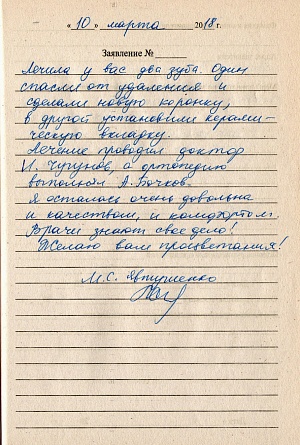 « 10 » марта 2018 г.
Заявление №
Лечила у вас два зуба. Один
спасли от удаления и
сделали новую коронку,
в другой установили керами-
ческую вкладку.
Лечение проводил доктор
И. Чугунов, а ортопедию
выполнял А. Бочков.
Я осталась очень довольна
и качеством, и комфортом.
Врачи знают свое дело!
Желаю вам процветания!
М.С. Явтушенко